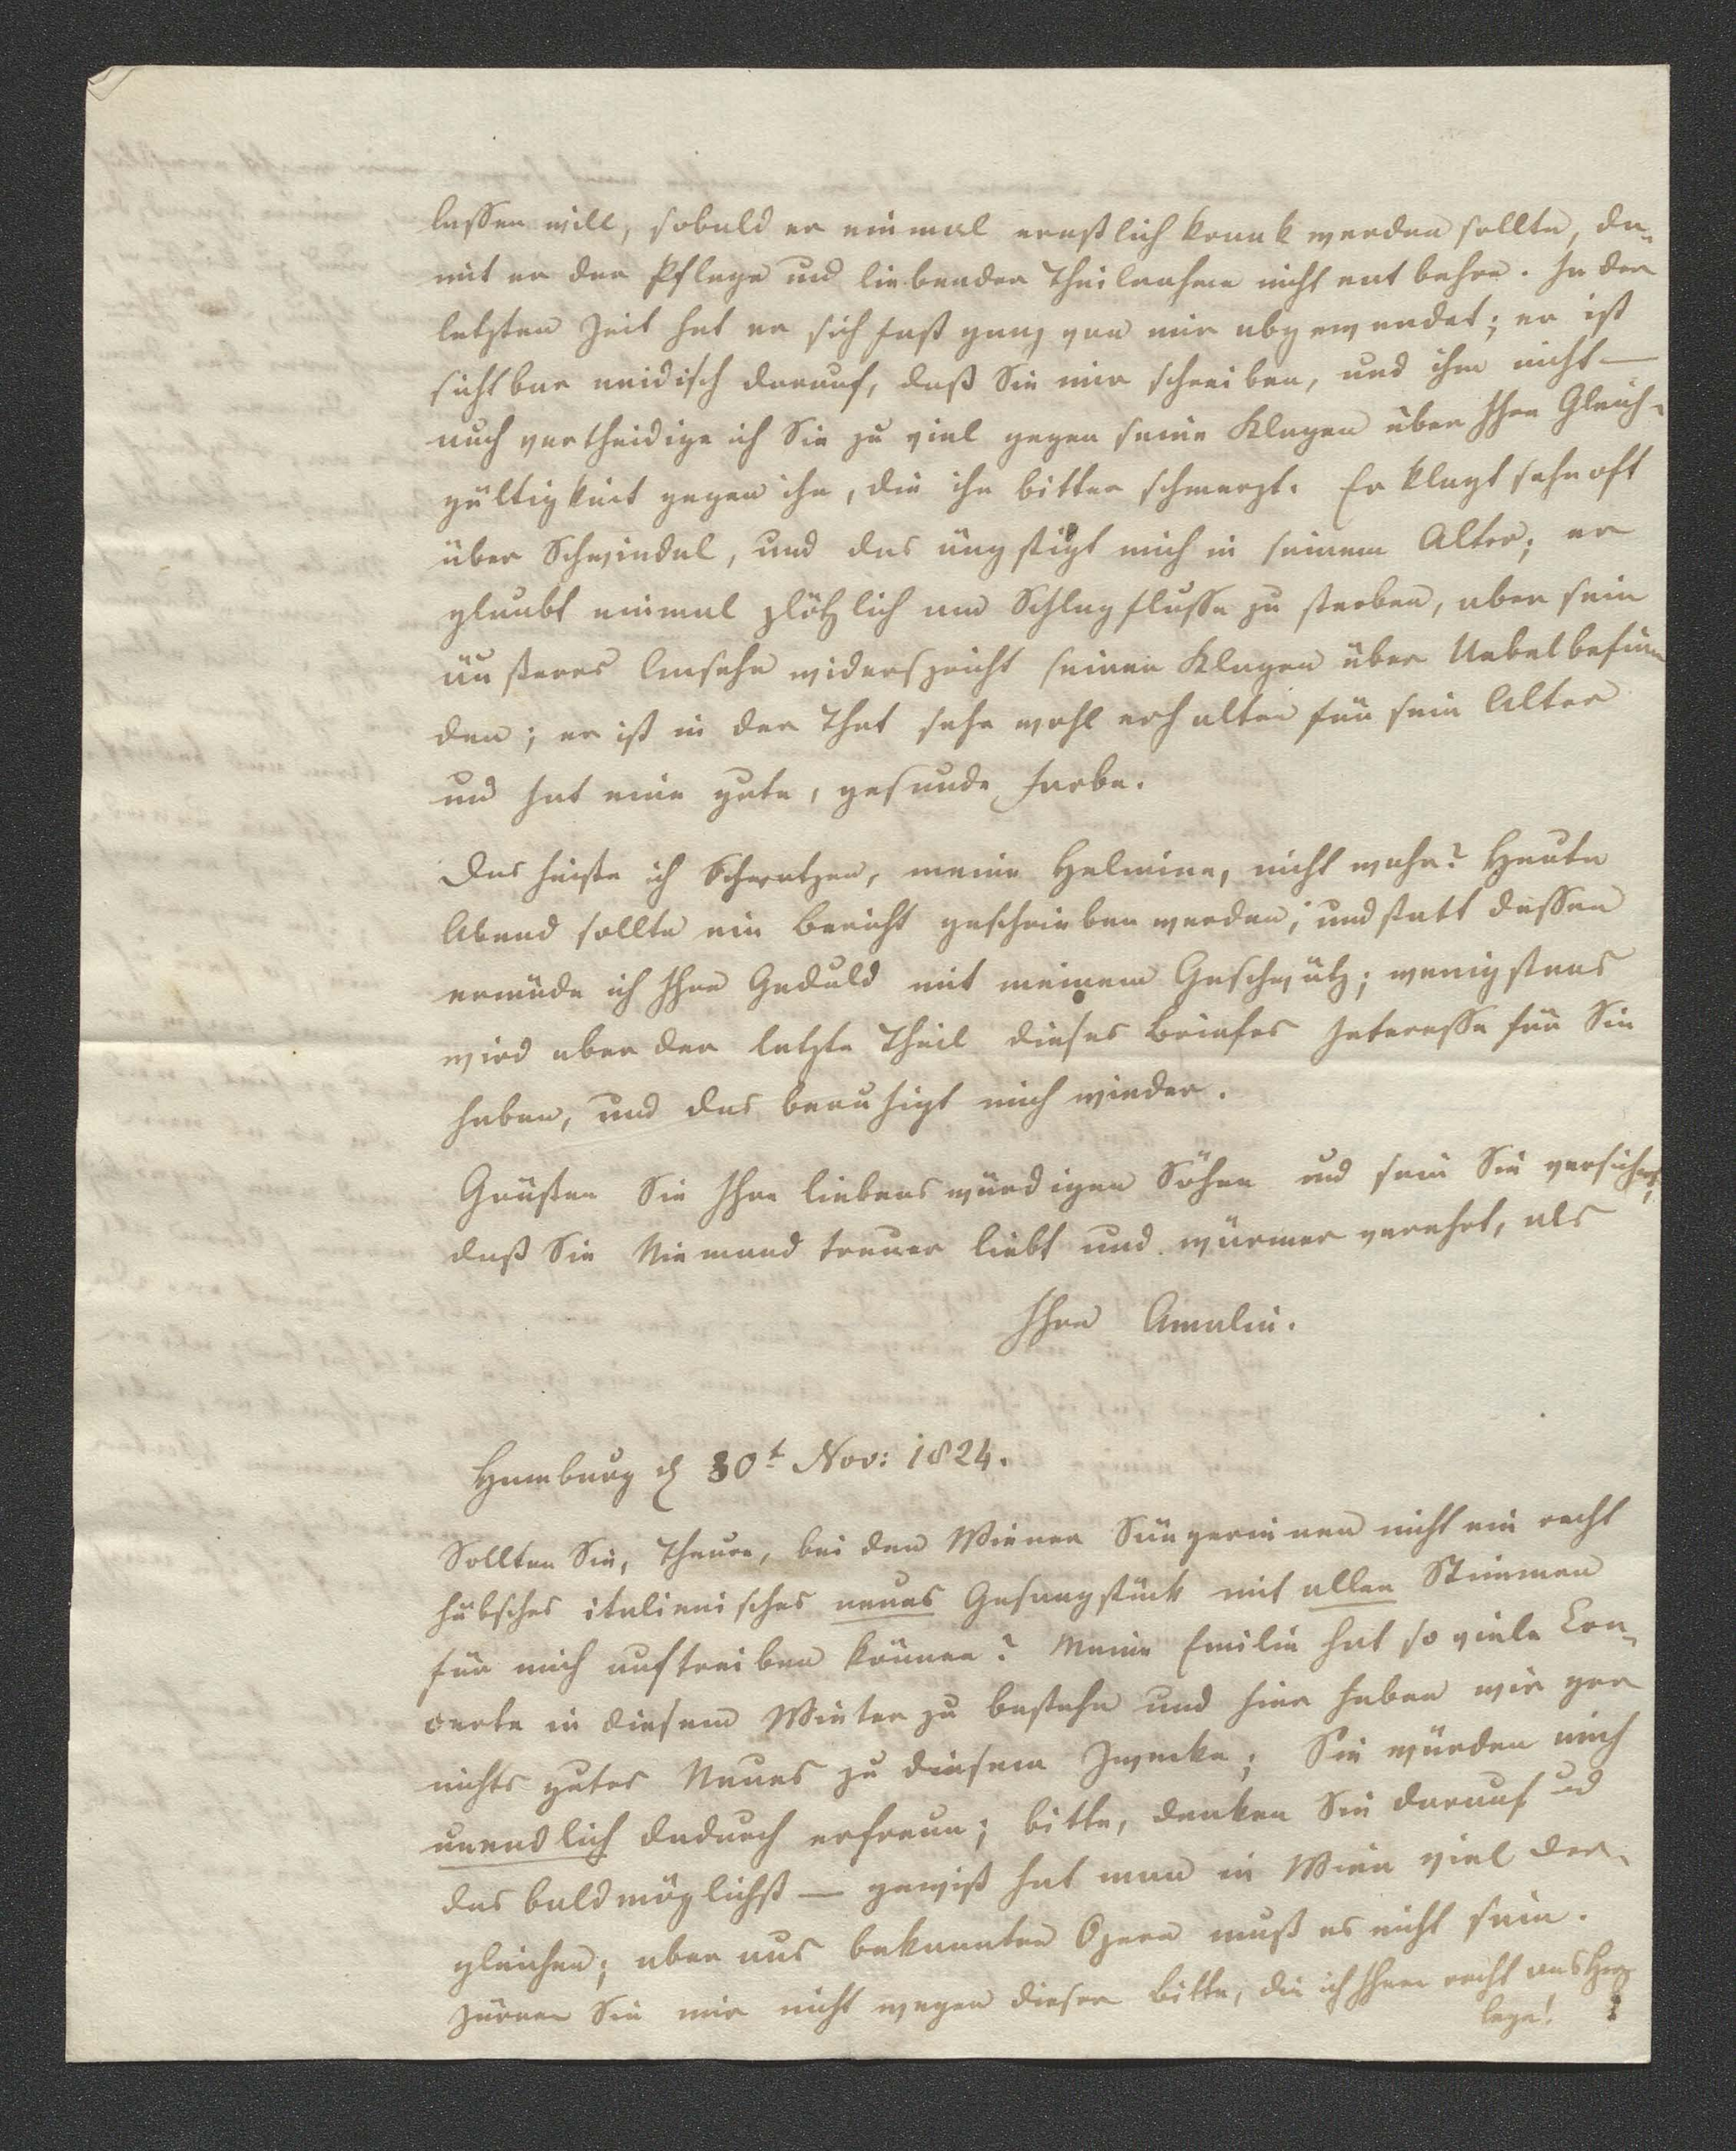 lassen will, sobald er einmal ernstlich krank werden sollte, da-
mit er der Pflege und liebender Theilnahme nicht entbehre. In der
letzten Zeit hat er sich fast ganz von mir abgewendet; er ist
sichtbar neidisch darauf, daß Sie mir schreiben, und ihm nicht —
auch vertheidige ich Sie zu viel gegen seine Klagen über Ihre Gleich-
gültigkeit gegen ihn, die ihn bitter schmerzt. Er klagt sehr oft
über Schwindel, und das ängstigt mich in seinem Alter; er
glaubt einmal plötzlich am Schlagflusse zu sterben, aber sein
äußeres Ansehn widerspricht seinen Klagen über Uebelbefin-
den; er ist in der That sehr wohl erhalten für sein Alter
und hat eine gute, gesunde Farbe.
Das heiße ich Schwatzen, meine Helmine, nicht wahr? Heute
Abend sollte ein Bericht geschrieben werden; und statt dessen
ermüde ich Ihre Geduld mit meinem Geschwätz; wenigstens
wird aber der letzte Theil dieses Briefes Interesse für Sie
haben, und das beruhigt mich wieder.
Grüßen Sie Ihre liebenswürdigen Söhne und sein Sie versichert,
daß Sie Niemand treuer liebt und wärmer verehrt, als
Ihre Amalie.
Hamburg d 30t Nov: 1824.
Sollten Sie, Theure, bei den Wiener Sängerinnen nicht ein recht
hübsches italienisches neues Gesangstück mit allen Stimmen
für mich auftreiben können? Meine Emilie hat so viele Con-
certe in diesem Winter zu bestehn und hier haben wir gar
nichts gutes Neues zu diesem Zwecke; Sie würden mich
unendlich dadurch erfreun; bitte, denken Sie darauf und
das baldmöglichst — gewiß hat man in Wien viel der-
gleichen; aber aus bekannten Opern muß es nicht sein.
Zürnen Sie mir nicht wegen dieser Bitte, die ich Ihnen recht ans Herz
lege!